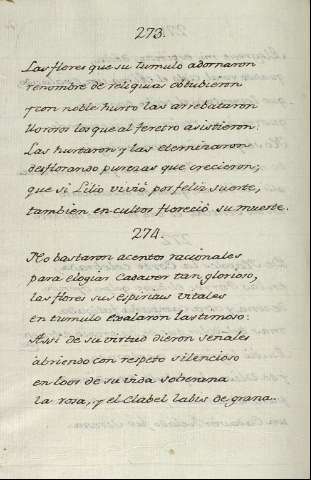 273.
Las flores que su tumulo adornaron
renombre de reliquias obtubieron
y con noble hurto las arrebataron
llorosos los que al feretro asistieron:
Las hurtaron y las eternizaron
desflorando purezas que crecieron;
que si Lilio vivió por feliz suerte,
tambien en cultos floreció su muerte.
274.
No bastaron acentos racionales
para elogiar Cadaver tan glorioso,
las flores sus espiritus vitales
en tumulo exalaron lastimoso:
Assi de su virtud dieron señales
abriendo con respeto silencioso
en loor de su vida soberana
la rosa, y el Clabel labios de grana.